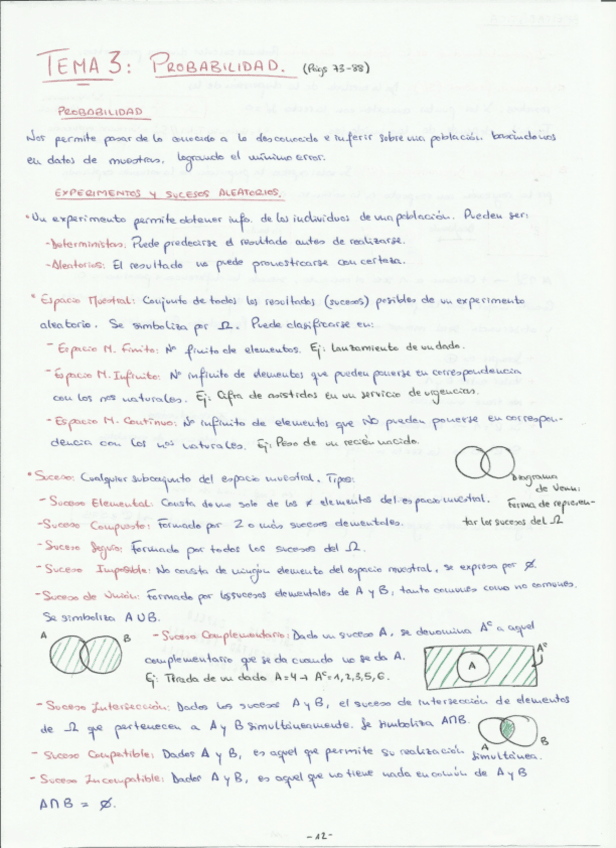 TEMA 3: PROBABILIDAD. (Págs 73-88)
PROBABILIDAD
Nos permite pasar de lo conocido a lo desconocido e inferir sobre una población basándonos
en datos de muestras, logrando el mínimo error.
EXPERIMENTOS Y SUCESOS ALEATORIOS.
* Un experimento permite obtener info. de los individuos de una población. Pueden ser:
- Deterministas: Puede predecirse el resultado antes de realizarse.
- Aleatorios: El resultado no puede pronosticarse con certeza.
* Espacio Muestral: Conjunto de todos los resultados (sucesos) posibles de un experimento
aleatorio. Se simboliza por Ω. Puede clasificarse en:
- Espacio M. Finito: Nº finito de elementos. Ej: Lanzamiento de un dado.
- Espacio M. Infinito: Nº infinito de elementos que pueden ponerse en correspondencia
con los nos naturales. Ej: Cifra de asistidos en un servicio de urgencias.
- Espacio M. Continuo: Nº infinito de elementos que NO pueden ponerse en correspon-
dencia con los nos naturales. Ej: Peso de un recién nacido.
* Suceso: Cualquier subconjunto del espacio muestral. Tipos:
Diagrama
de Venn:
Forma de represen-
tar los sucesos del Ω
- Suceso Elemental: Consta de uno solo de los elementos del espacio muestral.
- Suceso Compuesto: Formado por 2 o más sucesos elementales.
- Suceso Seguro: Formado por todos los sucesos del Ω.
- Suceso Imposible: No consta de ningún elemento del espacio muestral, se expresa por Ø.
- Suceso de Unión: Formado por los sucesos elementales de A y B, tanto comunes como no comunes.
Se simboliza A U B.
A B
- Suceso Complementario: Dado un suceso A, se denomina Aᶜ a aquel
complementario que se da cuando no se da A.
Ej: Tirada de un dado A=4 → Aᶜ=1,2,3,5,6.
A Aᶜ
- Suceso Intersección: Dados los sucesos A y B, el suceso de intersección de elementos
de Ω que pertenecen a A y B simultáneamente. Se simboliza A∩B.
A B
- Suceso Compatible: Dados A y B, es aquel que permite su realización simultánea.
- Suceso Incompatible: Dados A y B, es aquel que no tiene nada en común de A y B
A∩B = Ø.
-12-